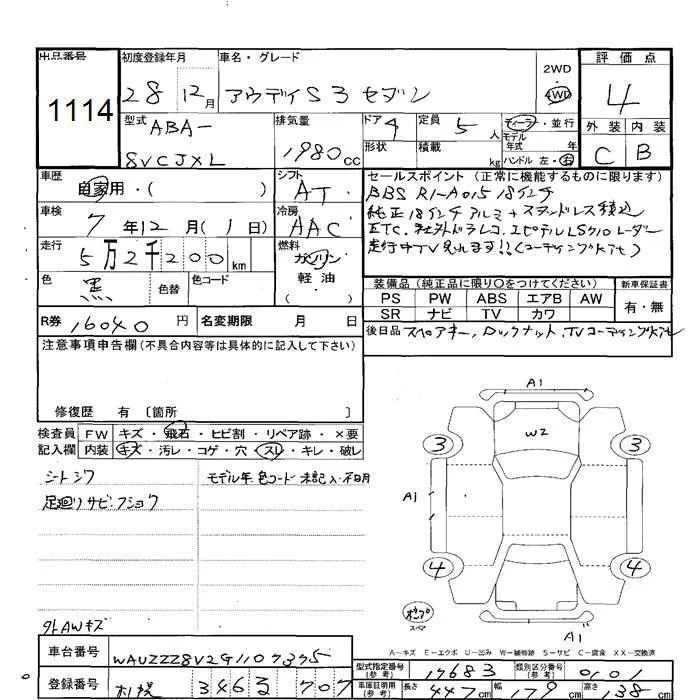 出品番号 初度登録年月 車名・グレード 2WD 評価点
1114 28 12月 アウディS3 セダン 4WD 4
型式 排気量 ドア 4 定員 5人 ディーラー・並行 外装 内装
ABA- 1980cc 形状 積載 kg モデル年式 年 C B
8VCJXL ハンドル 左・右
車歴 自家用・( ) シフト AT セールスポイント (正常に機能するものに限ります)
BBS RI-A015 18インチ
車検 7年12月(1日) 冷房 AAC 純正18インチアルミ+スタッドレス積込
ETC. 社外ドラレコ. ユピテルLS710レーダー
走行 5万2千200km 燃料 ガソリン 走行中TV見れます!!(コーディング施工)
軽油
色 黒 色替 色コード ・( ) 装備品 (純正品に限り○をつけてください) 新車保証書
PS PW ABS エアB AW 有・無
SR ナビ TV カワ
R券 16040円 名変期限 月 日 後日品 スペアキー、ロックナット、TVコーディング
注意事項申告欄(不具合内容等は具体的に記入して下さい)
修復歴 有〔箇所 〕
検査員 FW キズ・飛石・ヒビ割・リペア跡・×要
記入欄 内装 キズ・汚レ・コゲ・穴・スレ・キレ・破レ
シートシワ モデル年 色コード 未記入・不明
足廻りサビ・フショク
外AWキズ
A1
W2
3 3
A1
4 4
スペア
A1
A-キズ E-エクボ U-凹み W-補修跡 S-サビ C-腐食 XX-交換済
車台番号 WAUZZZ8V2G1107375 型式指定番号(参考) 17683 類別区分番号(参考) 0101
登録番号 札幌 346 ろ 707 車庫証明用(参考) 長さ 447cm 幅 179cm 高さ 138cm